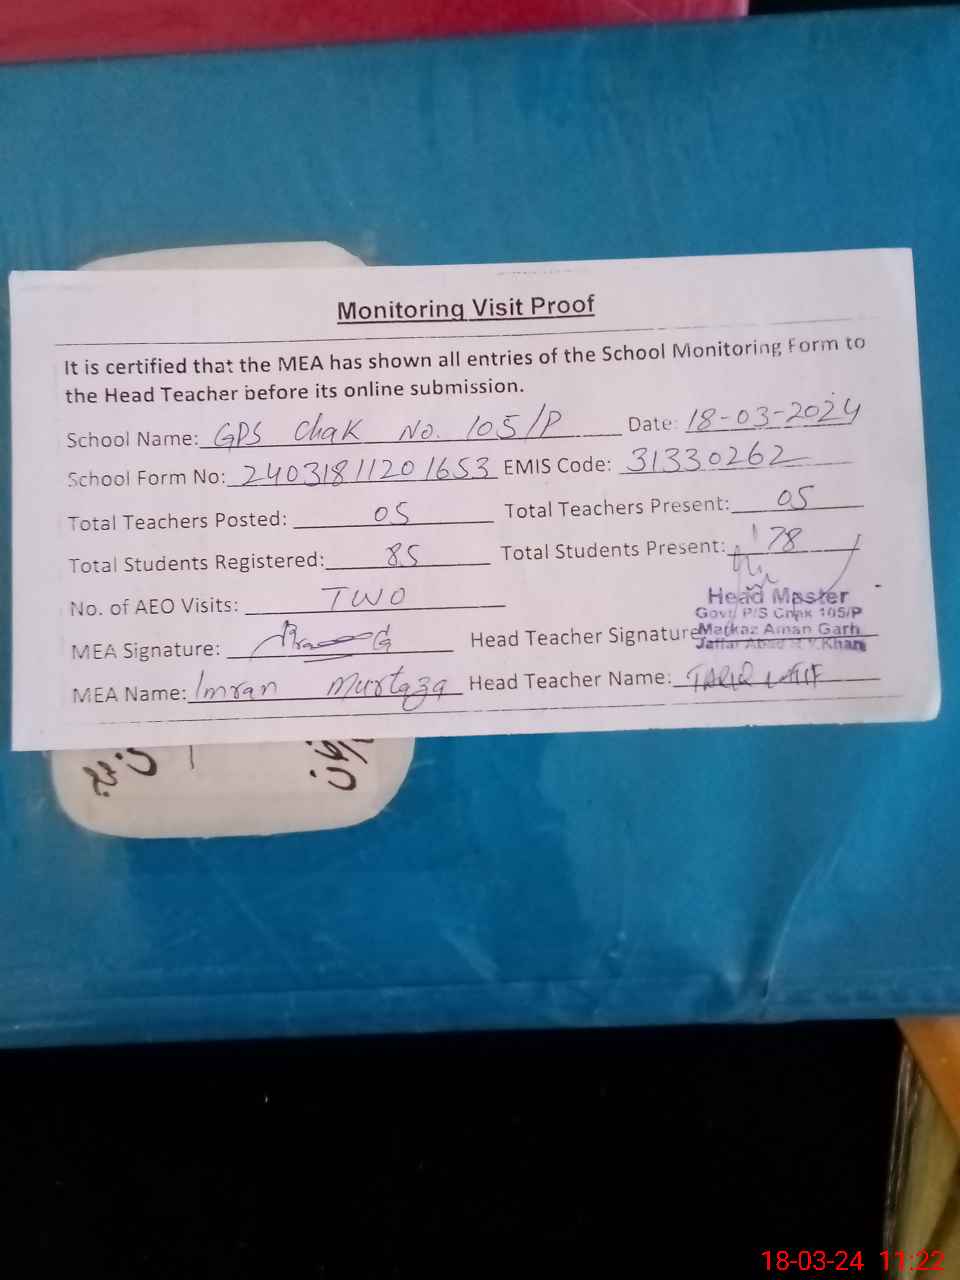 Monitoring Visit Proof
It is certified that the MEA has shown all entries of the School Monitoring Form to
the Head Teacher before its online submission.
School Name: GPS Chak No. 105/P Date: 18-03-2024
School Form No: 24031811201653 EMIS Code: 31330262
Total Teachers Posted: 05 Total Teachers Present: 05
Total Students Registered: 85 Total Students Present: 78
No. of AEO Visits: TWO
Head Master
Govt P/S Chak 105/P
MEA Signature: Head Teacher Signature Markaz Aman Garh
Jaffar Abad R.Y.Khan
MEA Name: Imran Murtaza Head Teacher Name: TARIQ
18-03-24 11:22